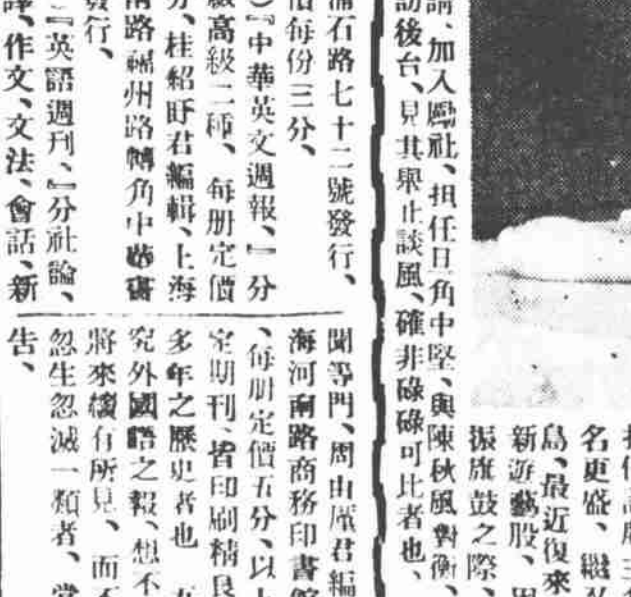 名更盛、繼
島、最近復來
新遊藝股、
振旅鼓之際、
請、加入勵社、担任日角中堅、與陳秋風對衡、
訪後台、見其舉止談風、確非碌碌可比者也、
浦石路七十二號發行、
價每份三分、
『中華英文週報、』分
級高級二種、每册定價
分、桂紹盱君編輯、上海
南路福州路轉角中華書
發行、
『英語週刊、』分社論、
譯、作文、文法、會話、新
聞等門、周由廑君編
海河南路商務印書館
、每册定價五分、以上
定期刊、皆印刷精良
多年之歷史者也
究外國語之報、想不
將來續有所見、而不
忽生忽滅一類者、當
告、